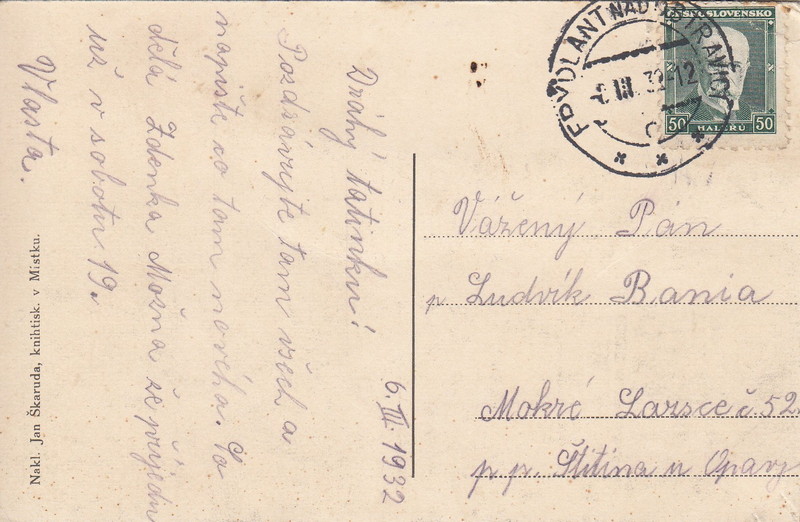 6. III. 1932
Drahý tatínku!
Pozdravujte tam všech a
napište co tam nového. Co
dělá Zdenka Možná že přijedu
už v sobotu 19.
Vlasta.
Nakl. Jan Škaruda, knihtisk. v Místku.
ČESKOSLOVENSKO
50 HALÉŘŮ 50
FRÝDLANT NAD OSTRAVICÍ
6. III. 32-12
Vážený Pán
p Ludvík Bania
Mokré Lazsce č. 52
p. p. Štítina u Opavy